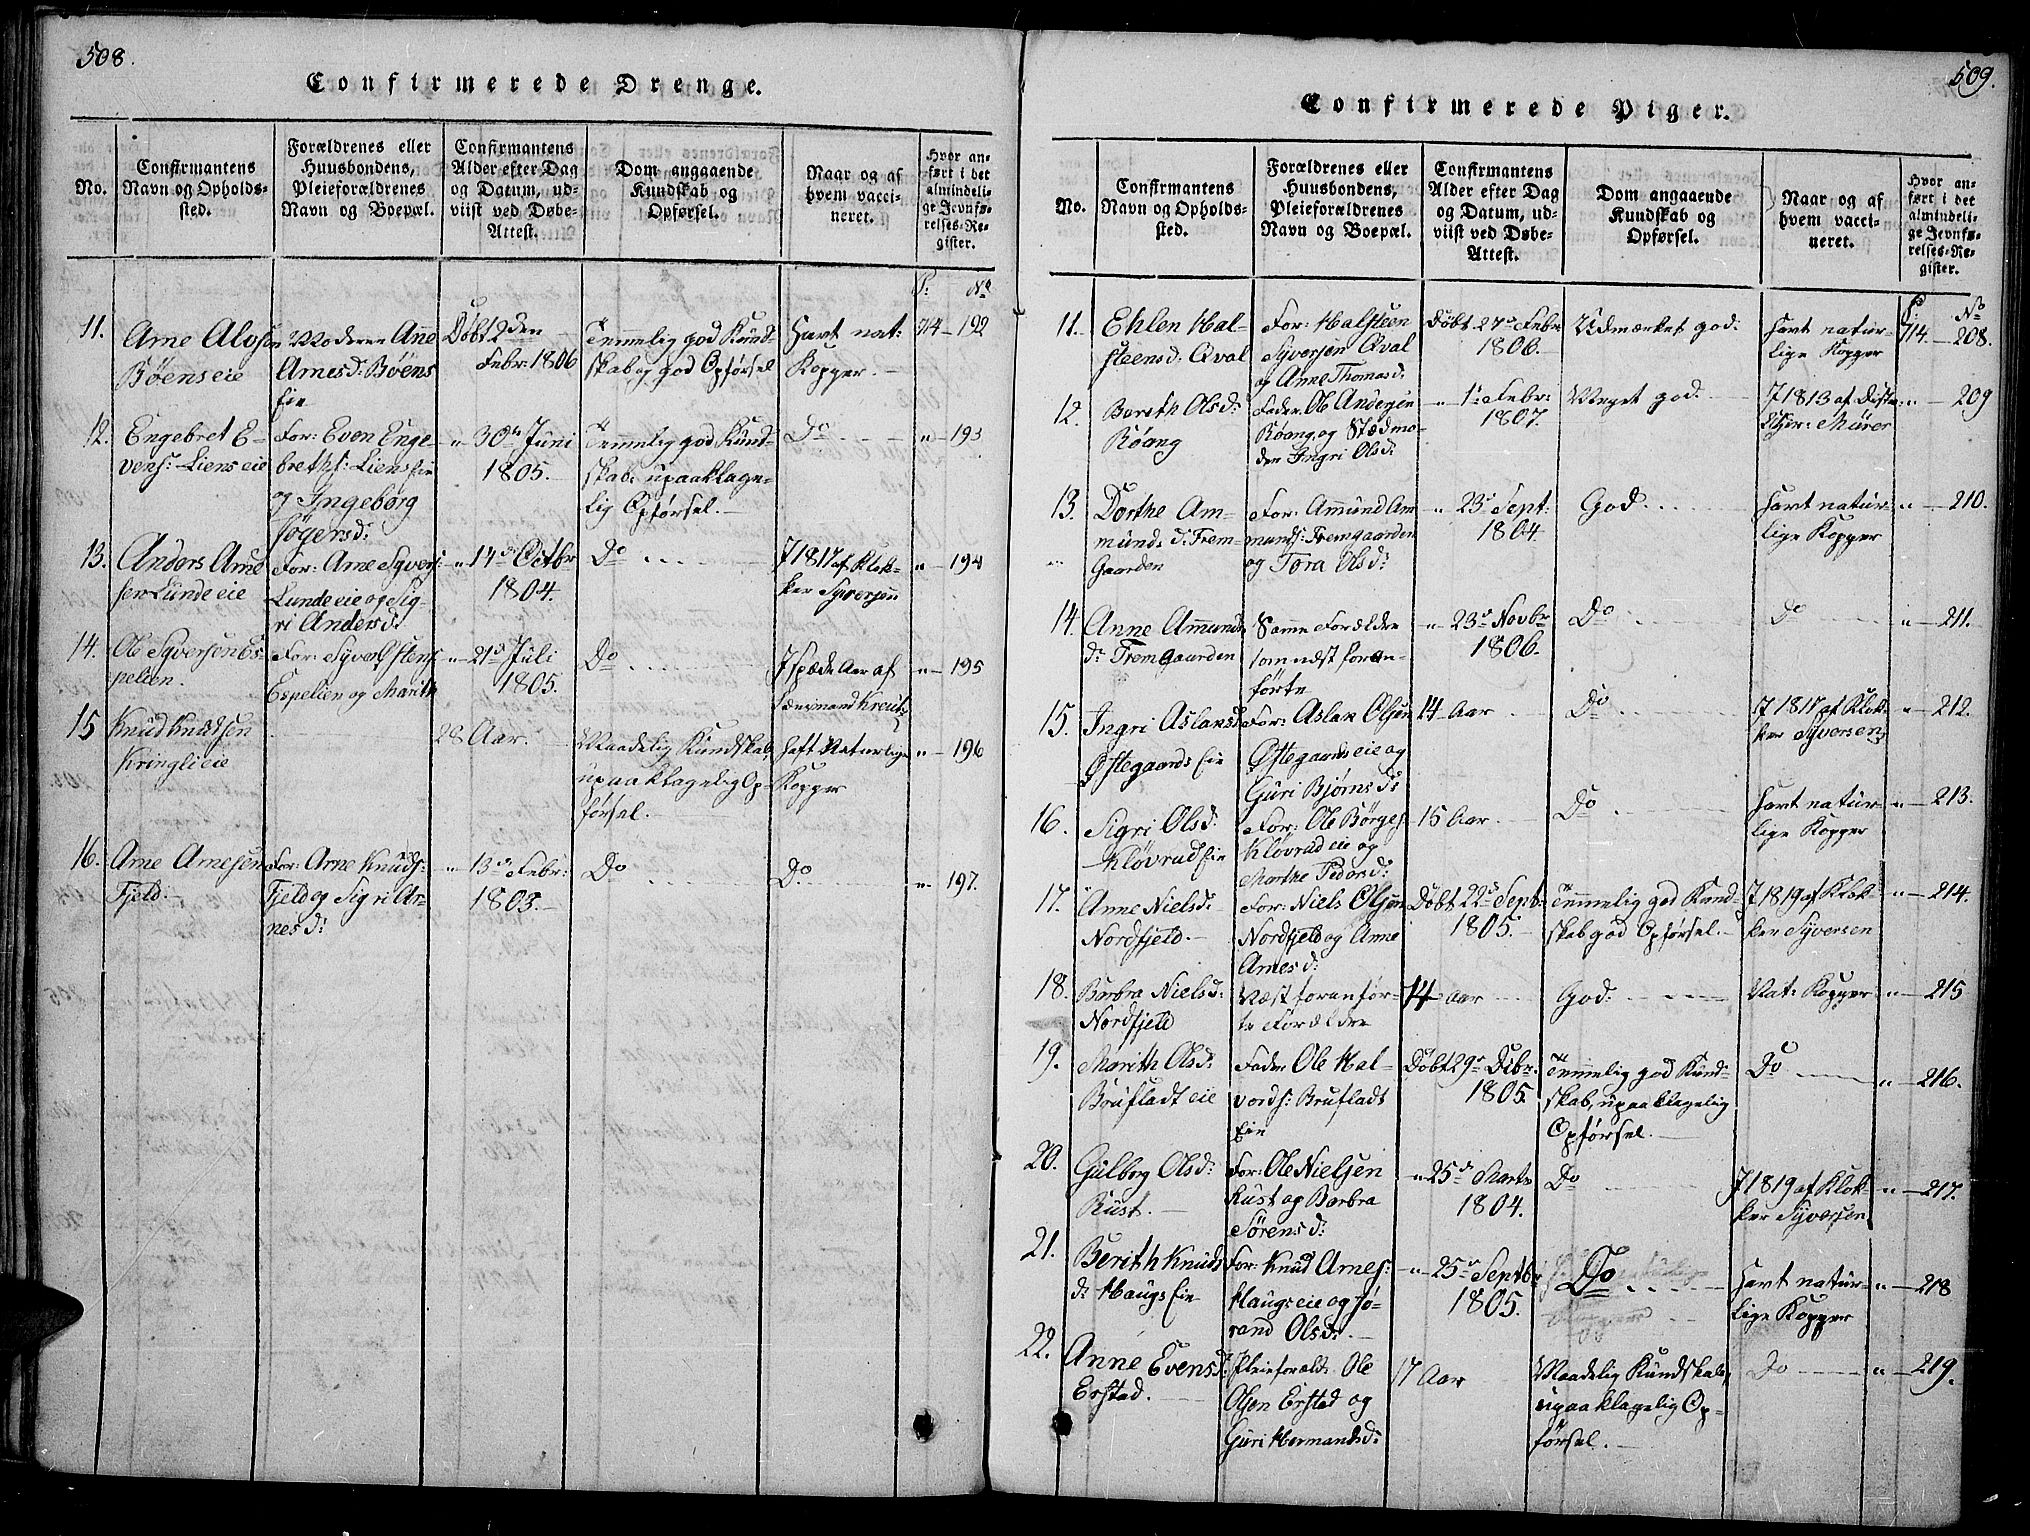 508.
Confirmerede Drenge.
No.
Confirmantens
Navn og Opholds-
sted.
Forældrenes eller
Huusbondens,
Pleieforældrenes
Navn og Boepæl.
Confirmantens
Alder efter Dag
og Datum, ud-
viist ved Døbe-
Attest.
Dom angaaende
Kundskab og
Opførsel.
Naar og af
hvem vacci-
neret.
Hvor an-
ført i det
almindeli-
ge Jevnfø-
relses-Re-
gister.
P: No
11.
Arne
Böens eie
Moderen Anne
Arnesd: Böens
Eie
Döbt 2den
Febr: 1806
Temmelig god Kund-
skab og god Opförsel
Havt nat:
Kopper.
714 - 192
12.
Engebret E-
vens: Liens eie
For: Even Enge-
breths: Liens Eie
og Ingeborg
Jögensd:
" 30te Juni
1805.
Temmelig god Kund-
skab, upaaklage-
lig Opförsel.
Do
" - 193
13.
Anders Arne
sen Lunde eie
For: Arne Syvers:
Lunde eie og Sig-
ri Andersd:
" 14de Octbr
1804.
Do
I 1817 af Klok-
ker Syversen
" - 194
14.
Ole Syversen Es-
pelien.
For: Syver Ostens:
Espelien og Marith
" 21de Juli
1805.
Do
I spæde Aar af
Lænsmand Kreutz
" - 195
15
Knud Knudsen
Kringli eie
28 Aar.
Maadelig Kundskab,
upaaklagelig Op-
försel.
Haft Naturlige
Kopper
" - 196
16.
Arne Arnesen
Fjeld.
For: Arne Knuds:
Fjeld og Sigri Ar-
nesd:
" 13de Febr:
1803.
Do
Do
" 197.
509.
Confirmerede Piger.
No.
Confirmantens
Navn og Opholds-
sted.
Forældrenes eller
Huusbondens,
Pleieforældrenes
Navn og Boepæl.
Confirmantens
Alder efter Dag
og Datum, ud-
viist ved Døbe-
Attest.
Dom angaaende
Kundskab og
Opførsel.
Naar og af
hvem vacci-
neret.
Hvor an-
ført i det
almindeli-
ge Jevnfø-
relses-Re-
gister.
P. No
11.
Ehlen Hal-
steensd: Qval
For: Halsteen
Syversen Qval
og Anne Thomasd:
Döbt 27de Febr
1806.
Udmærket god.
Havt natur-
lige Kopper
714. - 208.
12.
Berith Olsd:
Röang
Fader Ole Andersen
Röang, og Stedmo-
der Ingri Olsd:
" 1te Febr:
1807.
Meget god.
I 1813 af Distr:
Chir: Mürer
" - 209
13.
Dorthe Am-
munds d: Frem-
Gaarden
For: Ammund Am
munds: Fremgaarden
og Tora Olsd:
" 23de Sept:
1804.
God.
Havt natur-
lige Kopper
" - 210.
14.
Anne Ammunds
d: Fremgaarden
Samme Forældre
som næst foran-
förte
" 23de Novbr
1806.
Do
Do
" - 211.
15.
Ingri Aslaksd:
Östegaards Eie
For: Aslak Olsen
Östegaards eie og
Guri Björnsd:
14 Aar
Do
I 1817 af Klok-
ker Syversen
" - 212.
16.
Sigri Olsd:
Klövrud Eie
For: Ole Börges:
Klövrud eie og
Marthe Pedersd:
15 Aar.
Do
Havt natur-
lige Kopper
" - 213.
17.
Anne Nielsd:
Nordfjeld.
For: Niels Olsen
Nordfjeld og Anne
Arnesd:
Döbt 22de Sept:
1805.
Temmelig god Kund-
skab god Opförsel.
I 1819 af Klok-
ker Syversen
" - 214.
18.
Barbra Nielsd:
Nordfjeld
Næst foranför-
te Forældre
14 Aar
God.
Nat: Kopper
" - 215
19.
Marith Olsd:
Brufladt eie
Fader Ole Hal-
vords: Brufladt
Eie
Döbt 29de Decbr.
1805.
Temmelig god Kund-
skab, upaaklagelig
Opförsel.
Do
" - 216.
20.
Gulborg Olsd:
Rust.
For: Ole Nielsen
Rust og Barbra
Sörensd:
" 25de Marts
1804.
Do
I 1819 af Klok-
ker Syversen
" - 217.
21.
Berith Knuds
d: Haugs Eie
For: Knud Arnes:
Haugs eie og Jö-
rand Olsd:
" 25de Septbr
1805.
Do
Havt natur-
lige Kopper
" - 218
22.
Anne Evensd:
Erstad.
Pleieforæld: Ole
Olsen Erstad og
Guri Hermandsd:
17 Aar
Maadelig Kundskab,
upaaklagelig Op-
försel.
Do
" - 219.